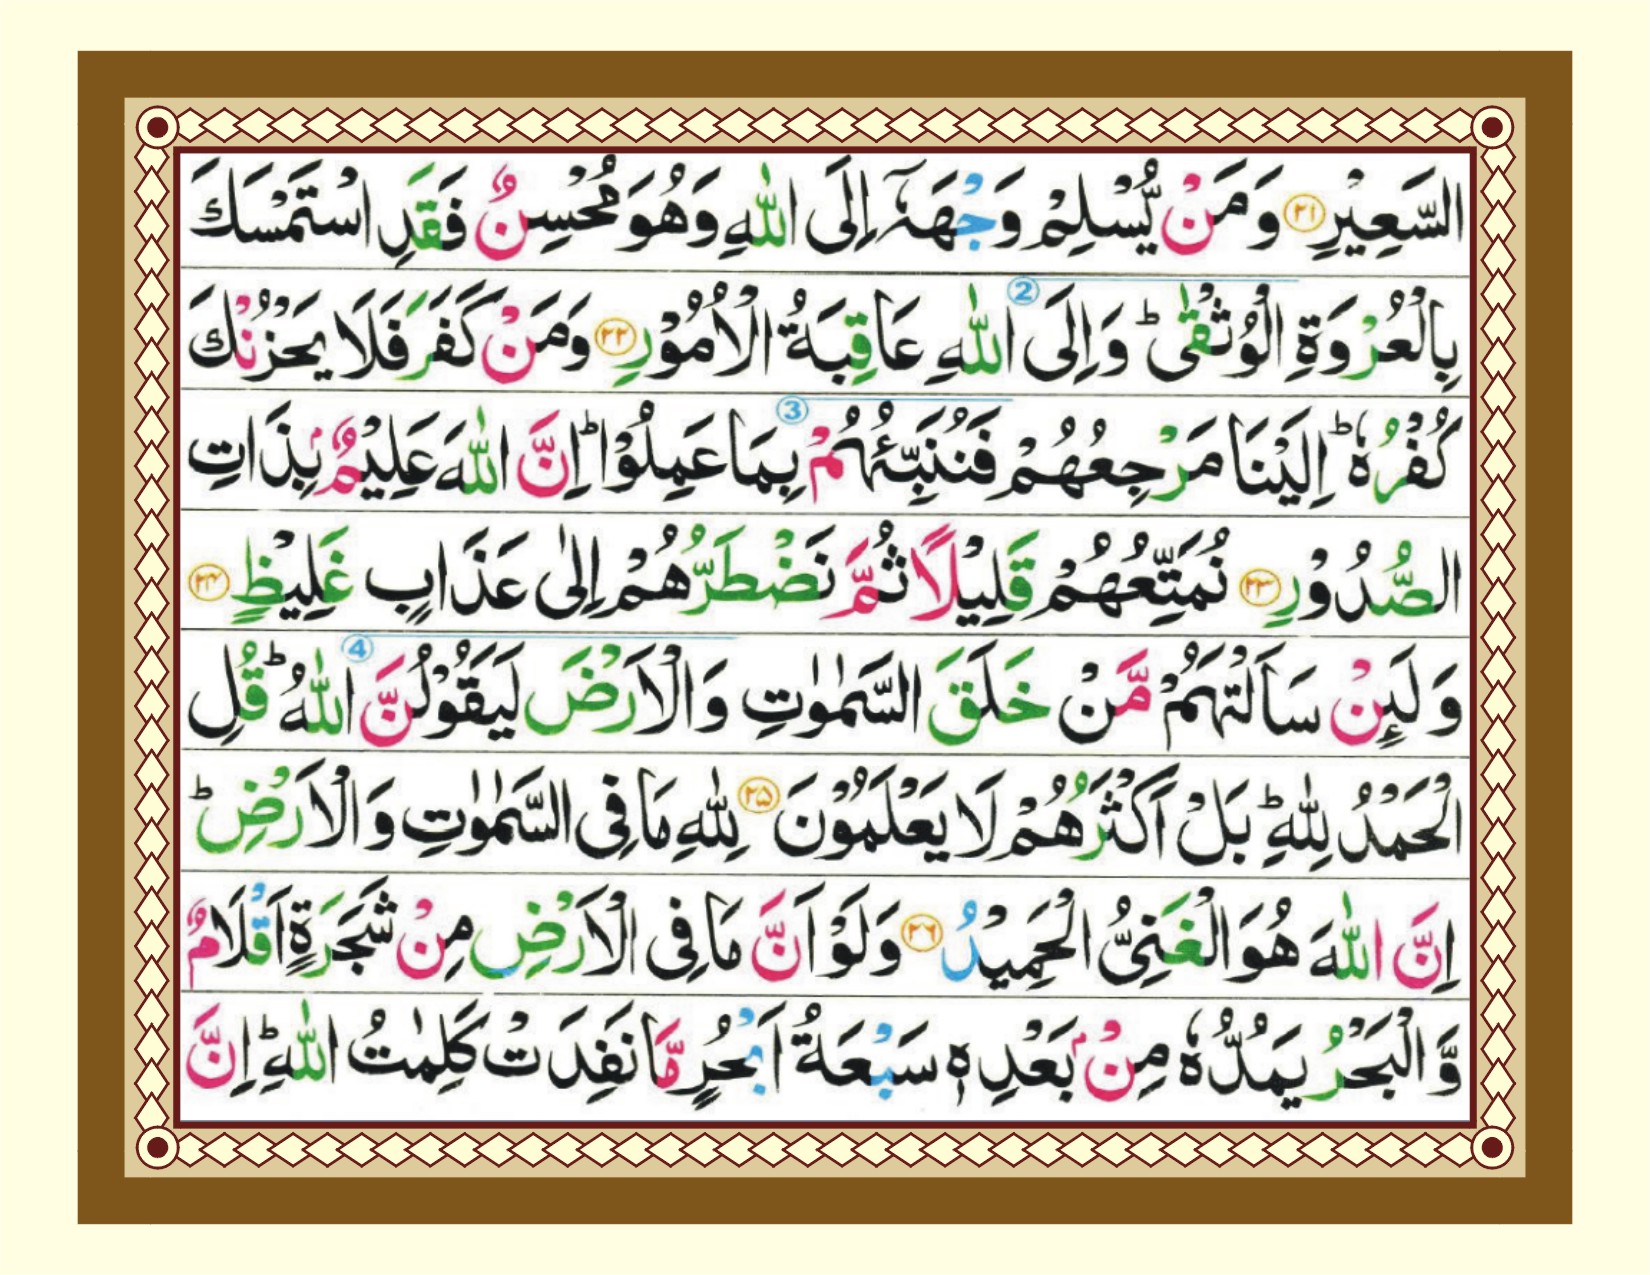 السَّعِيْرِ ﴿۲۱﴾ وَمَنْ يُّسْلِمْ وَجْهَهٗۤ اِلَى اللّٰهِ وَهُوَ مُحْسِنٌ فَقَدِ اسْتَمْسَكَ
بِالْعُرْوَةِ الْوُثْقٰى ؕ ② وَاِلَى اللّٰهِ عَاقِبَةُ الْاُمُوْرِ ﴿۲۲﴾ وَمَنْ كَفَرَ فَلَا يَحْزُنْكَ
كُفْرُهٗ ؕ اِلَيْنَا مَرْجِعُهُمْ فَنُنَبِّئُهُمْ ③ بِمَا عَمِلُوْا ؕ اِنَّ اللّٰهَ عَلِيْمٌۢ بِذَاتِ
الصُّدُوْرِ ﴿۲۳﴾ نُمَتِّعُهُمْ قَلِيْلًا ثُمَّ نَضْطَرُّهُمْ اِلٰى عَذَابٍ غَلِيْظٍ ﴿۲۴﴾
وَلَئِنْ سَاَلْتَهُمْ مَّنْ خَلَقَ السَّمٰوٰتِ وَالْاَرْضَ لَيَقُوْلُنَّ ④ اللّٰهُ ؕ قُلِ
الْحَمْدُ لِلّٰهِ ؕ بَلْ اَكْثَرُهُمْ لَا يَعْلَمُوْنَ ﴿۲۵﴾ لِلّٰهِ مَا فِى السَّمٰوٰتِ وَالْاَرْضِ ؕ
اِنَّ اللّٰهَ هُوَ الْغَنِىُّ الْحَمِيْدُ ﴿۲۶﴾ وَلَوْ اَنَّ مَا فِى الْاَرْضِ مِنْ شَجَرَةٍ اَقْلَامٌ
وَّالْبَحْرُ يَمُدُّهٗ مِنْۢ بَعْدِهٖ سَبْعَةُ اَبْحُرٍ مَّا نَفِدَتْ كَلِمٰتُ اللّٰهِ ؕ اِنَّ